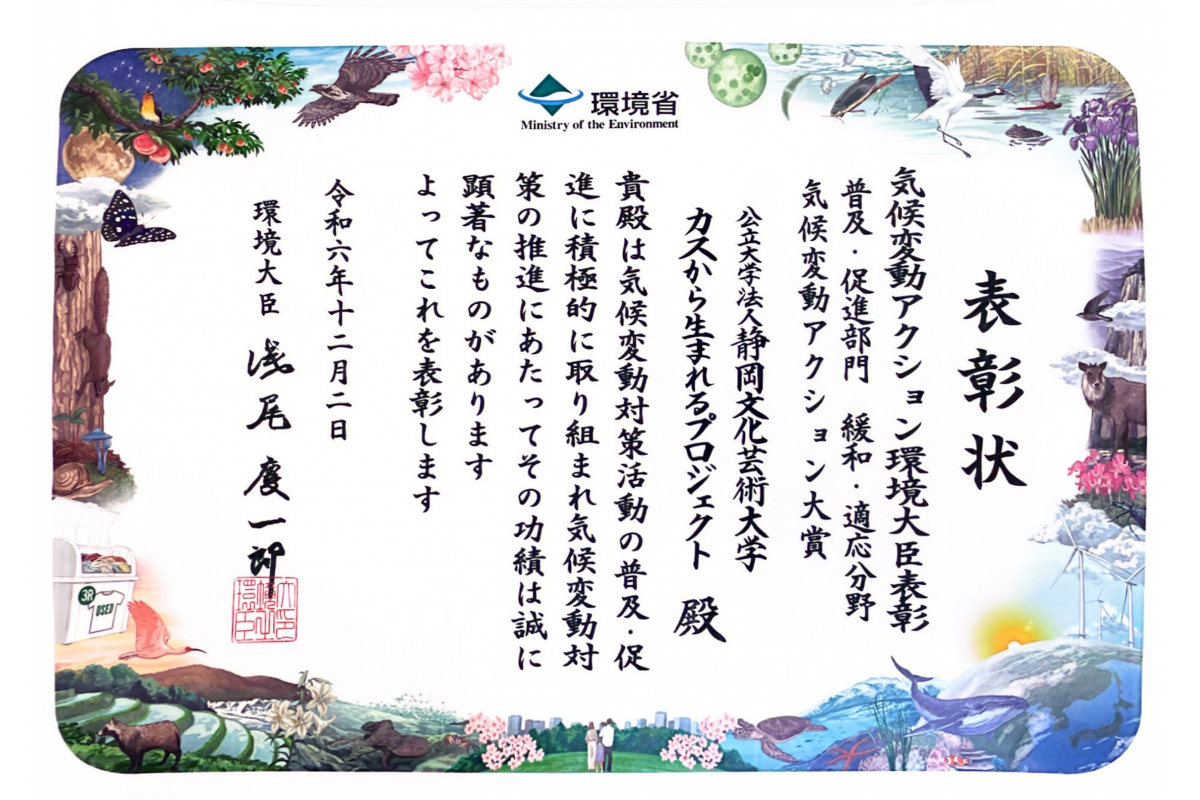 環境省
Ministry of the Environment
表彰状
気候変動アクション環境大臣表彰
普及・促進部門 緩和・適応分野
気候変動アクション大賞
公立大学法人静岡文化芸術大学
カスから生まれるプロジェクト 殿
貴殿は気候変動対策活動の普及・促
進に積極的に取り組まれ気候変動対
策の推進にあたってその功績は誠に
顕著なものがあります
よってこれを表彰します
令和六年十二月二日
環境大臣 浅尾慶一郎
3R
USED